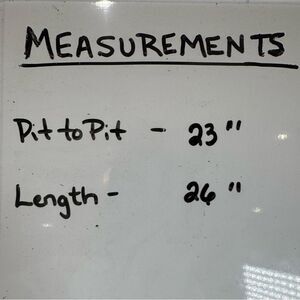 MEASUREMENTS
Pit to Pit - 23"
Length - 26"